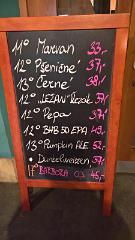 11° Marvan 33,-
12° Pšeničné 37,-
13° Černé 39,-
12° "LEŽÁK" Řezák 37,-
12° Pepa 37,-
12° BHB 50 EPA 43,-
13° Pumpkin ALE 52,-
• Dunkelweizen 57,-
17° BARBORA 0,3 45,-